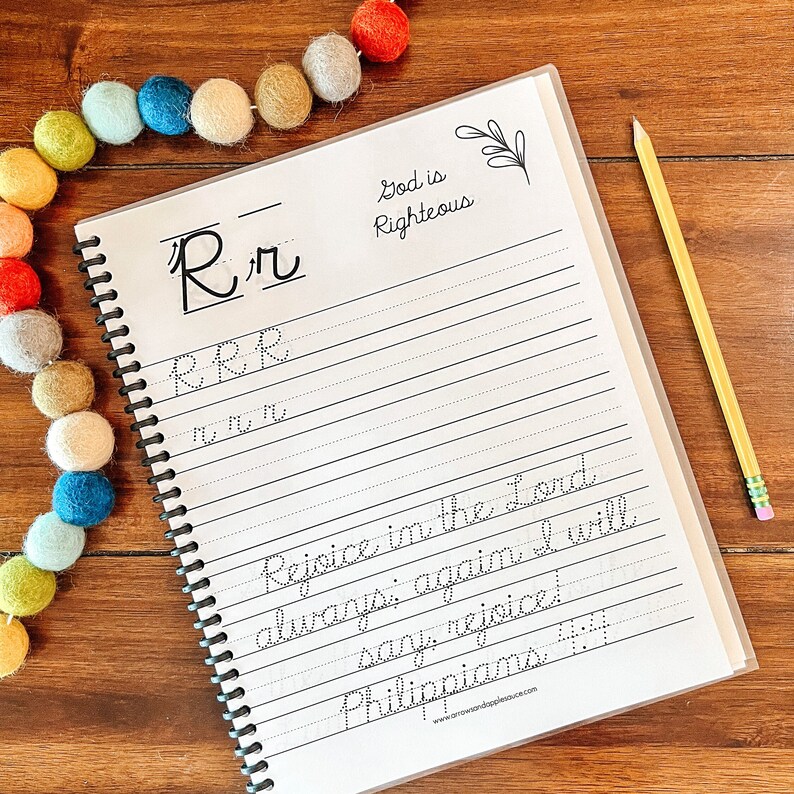 R r
God is
Righteous
R R R
r r r
Rejoice in the Lord
always; again I will
say, rejoice!
Philippians 4:4
www.arrowsandapplesauce.com